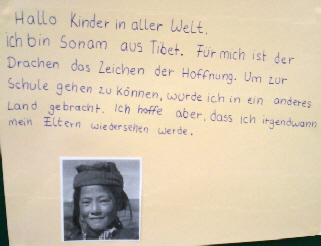 Hallo Kinder in aller Welt.
ich bin Sonam aus Tibet. Für mich ist der
Drachen das Zeichen der Hoffnung. Um zur
Schule gehen zu können, wurde ich in ein anderes
Land gebracht. Ich hoffe aber, dass ich irgendwann
mein Eltern wiedersehen werde.